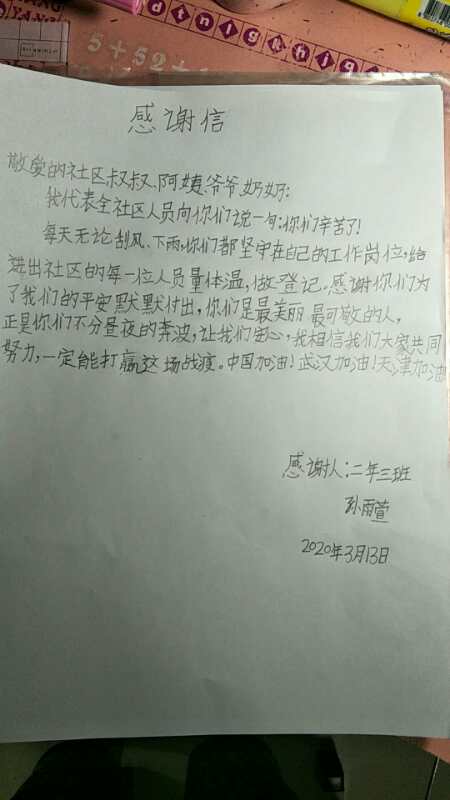 dtnigkhig
5+52+
感谢信
敬爱的社区叔叔、阿姨、爷爷、奶奶:
我代表全社区人员向你们说一句:你们辛苦了!
每天无论刮风、下雨,你们都坚守在自己的工作岗位,给
进出社区的每一位人员量体温,做登记。感谢你们为
了我们的平安默默付出,你们是最美丽最可敬的人,
正是你们不分昼夜的奔波,让我们安心,我相信我们大家共同
努力,一定能打赢这场战疫。中国加油!武汉加油!天津加油
感谢人:二年三班
孙雨萱
2020年3月13日